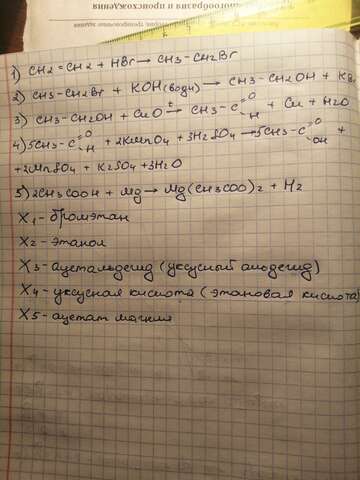 многообразия и происхождения
1) CH2=CH2 + HBr → CH3-CH2Br
2) CH3-CH2Br + KOH(водн) → CH3-CH2OH + KB
3) CH3-CH2OH + CuO t→ CH3-C O H + Cu + H2O
4) 5CH3-C O H + 2KMnO4 + 3H2SO4 → 5CH3-C O OH +
+2MnSO4 + K2SO4 + 3H2O
5) 2CH3COOH + Mg → Mg(CH3COO)2 + H2
X1 - бромэтан
X2 - этанол
X3 - ацетальдегид (уксусный альдегид)
X4 - уксусная кислота (этановая кислота)
X5 - ацетат магния